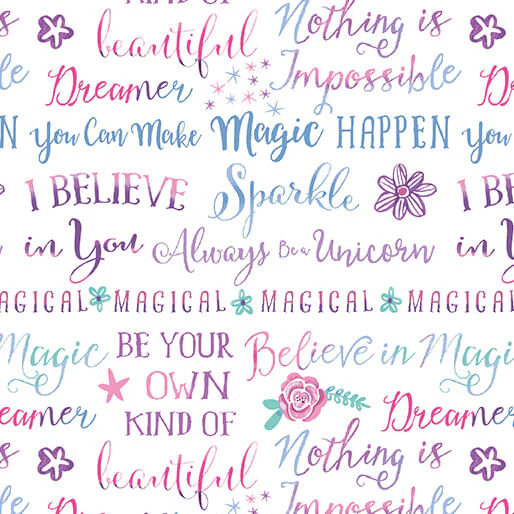 KIND OF
beautiful
Nothing is
Dreamer
Impossible
You Can Make Magic HAPPEN You
I BELIEVE
Sparkle
I BE
in You
Always Be a Unicorn
in Y
AGICAL MAGICAL MAGICAL MAGICAL
Magic
BE YOUR
Believe in Magi
OWN
KIND OF
Dreamer
beautiful
Nothing is
Dreamer
Impossible